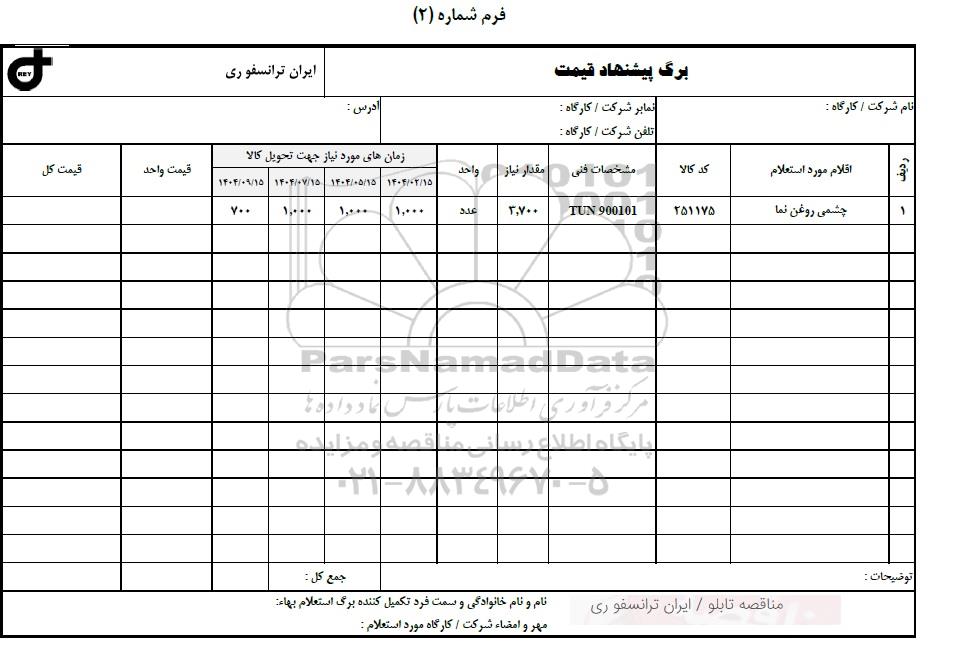 فرم شماره (۲)
برگ پیشنهاد قیمت
ایران ترانسفو ری
REY
نام شرکت / کارگاه :
نمابر شرکت / کارگاه :
تلفن شرکت / کارگاه :
ادرس :
ردیف
اقلام مورد استعلام
کد کالا
مشخصات فنی
مقدار نیاز
واحد
زمان های مورد نیاز جهت تحویل کالا
۱۴۰۴/۰۲/۱۵
۱۴۰۴/۰۵/۱۵
۱۴۰۴/۰۷/۱۵
۱۴۰۴/۰۹/۱۵
قیمت واحد
قیمت کل
۱
چشمی روغن نما
۲۵۱۱۷۵
TUN 900101
۳,۷۰۰
عدد
۱,۰۰۰
۱,۰۰۰
۱,۰۰۰
۷۰۰
ParsNamadData
مرکز فرآوری اطلاعات پارس نماد داده ها
پایگاه اطلاع رسانی مناقصه و مزایده
۰۲۱-۸۸۳۴۹۶۷۰-۵
توضیحات :
جمع کل :
مناقصه تابلو / ایران ترانسفو ری
نام و نام خانوادگی و سمت فرد تکمیل کننده برگ استعلام بهاء:
مهر و امضاء شرکت / کارگاه مورد استعلام :